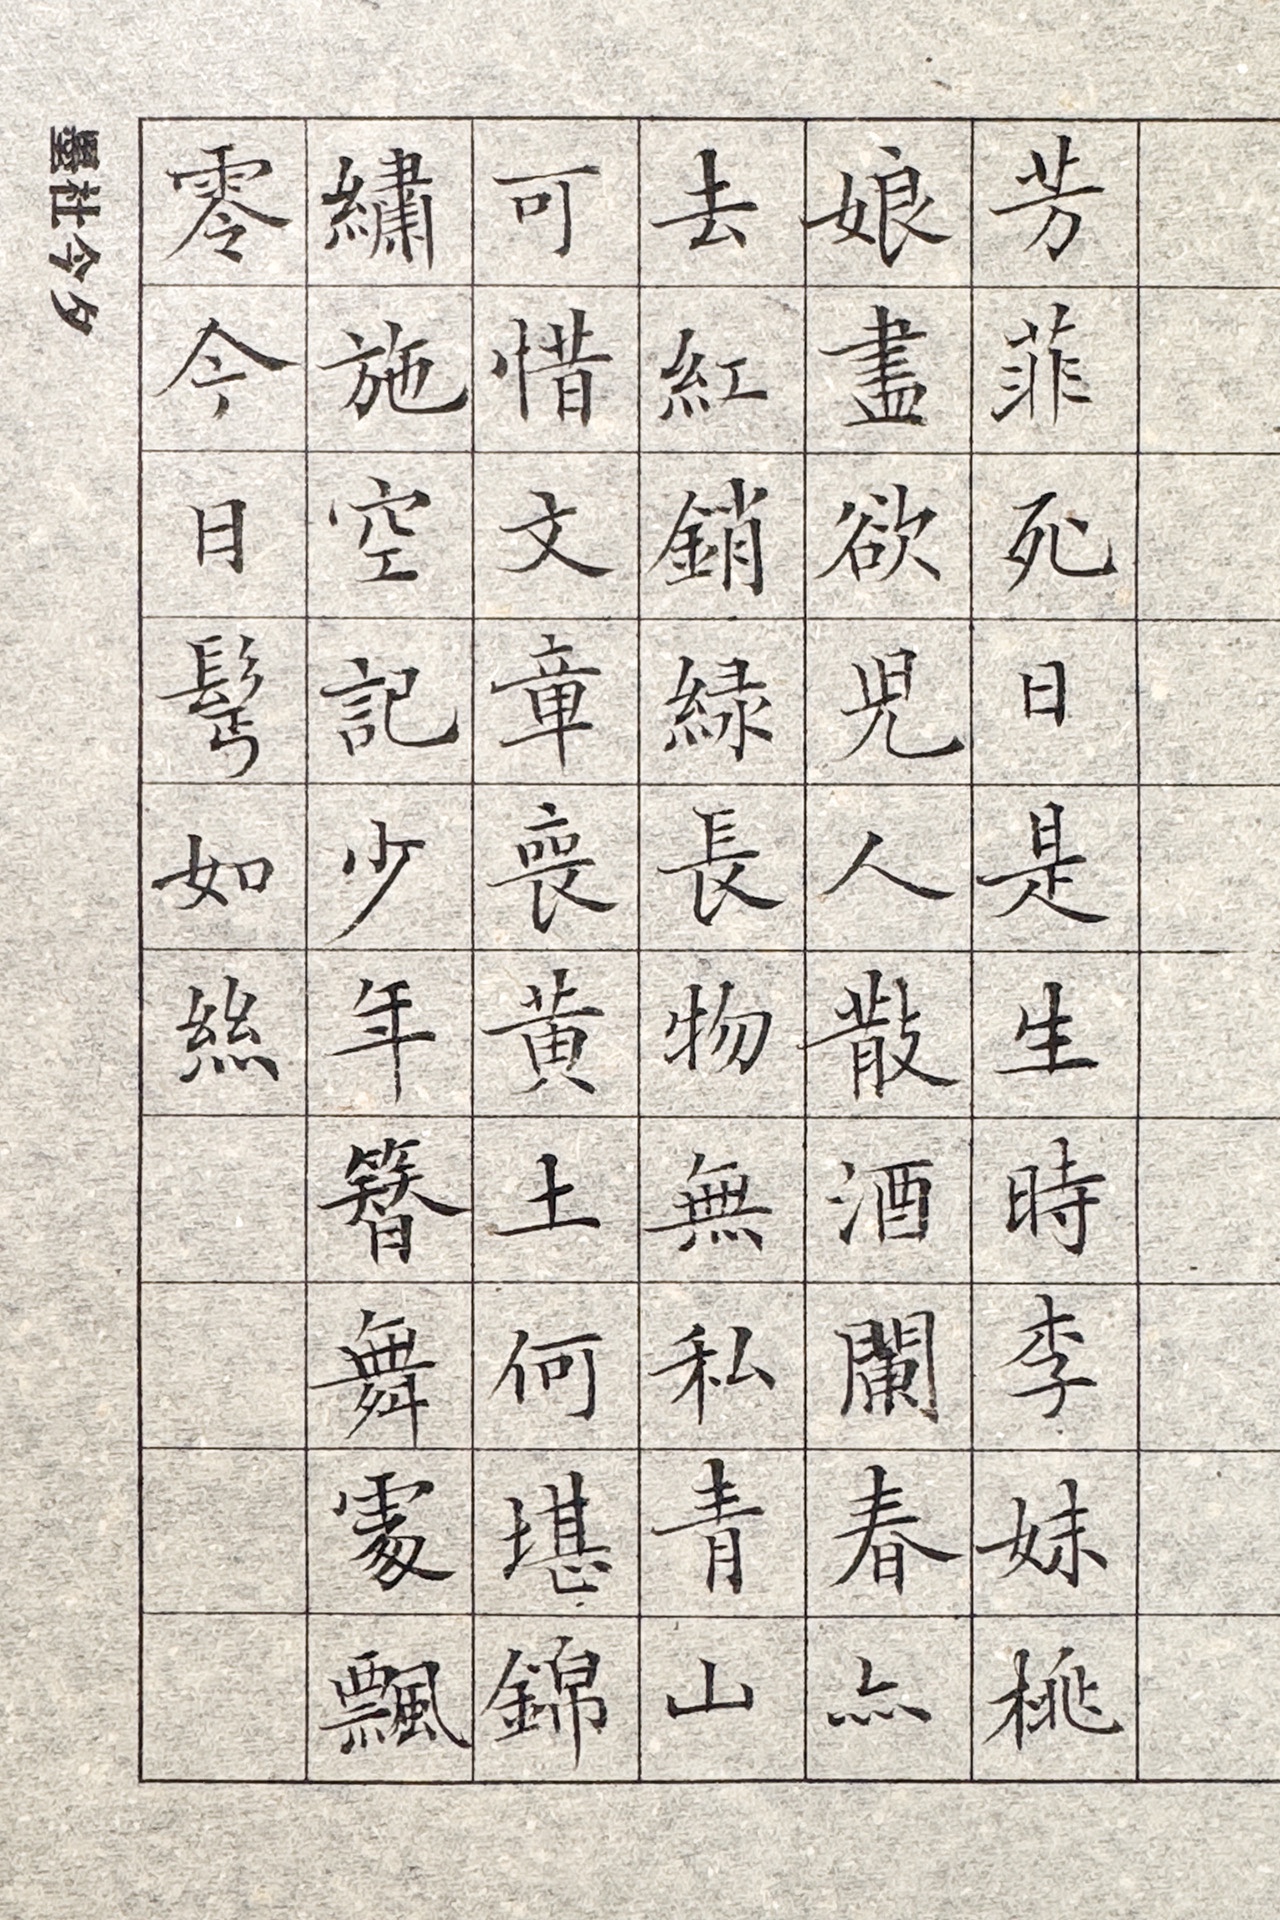 芳菲死日是生時李妹桃
娘盡欲兒人散酒闌春亦
去紅銷緑長物無私青山
可惜文章喪黃土何堪錦
繡施空記少年簪舞處飄
零今日鬢如絲
墨社今夕